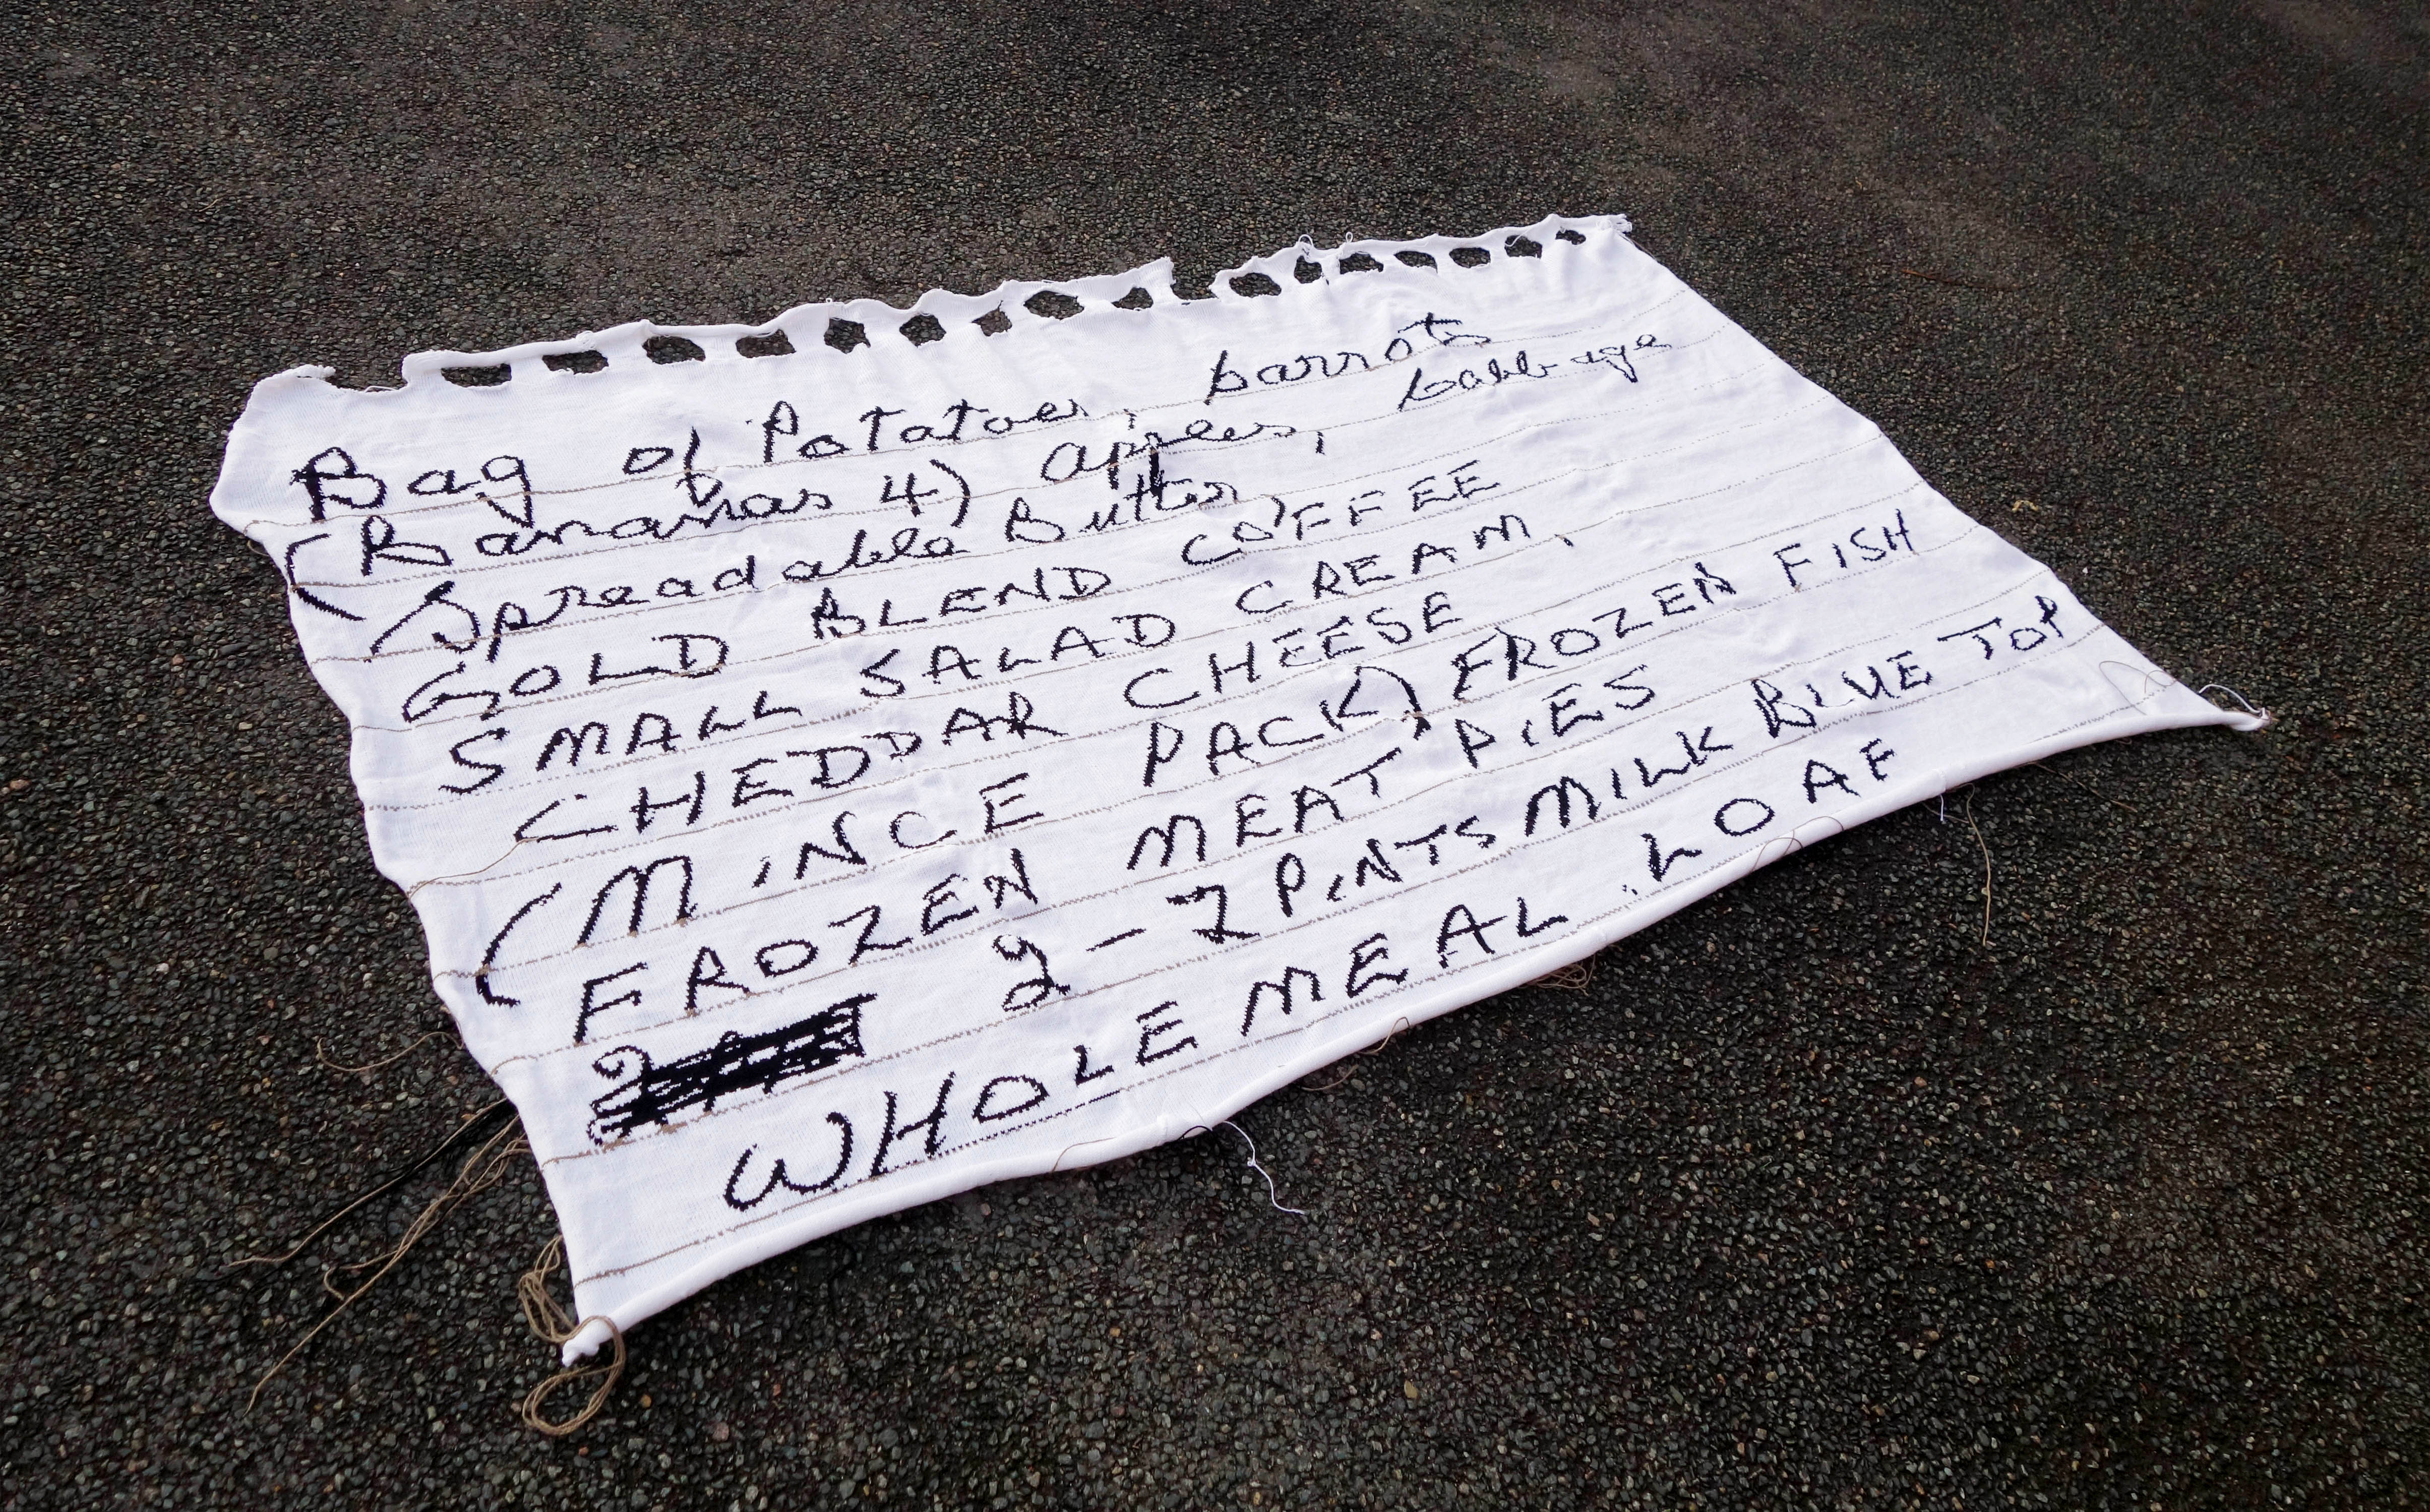 Bag of Potatoes, carrots
(Bananas 4) apples, cabbage
Spreadable Butter,
GOLD BLEND COFFEE
SMALL SALAD CREAM.
CHEDDAR CHEESE
(MINCE PACK) FROZEN FISH
FROZEN MEAT PIES
2 - 2 PINTS MILK BLUE TOP
WHOLE MEAL LOAF